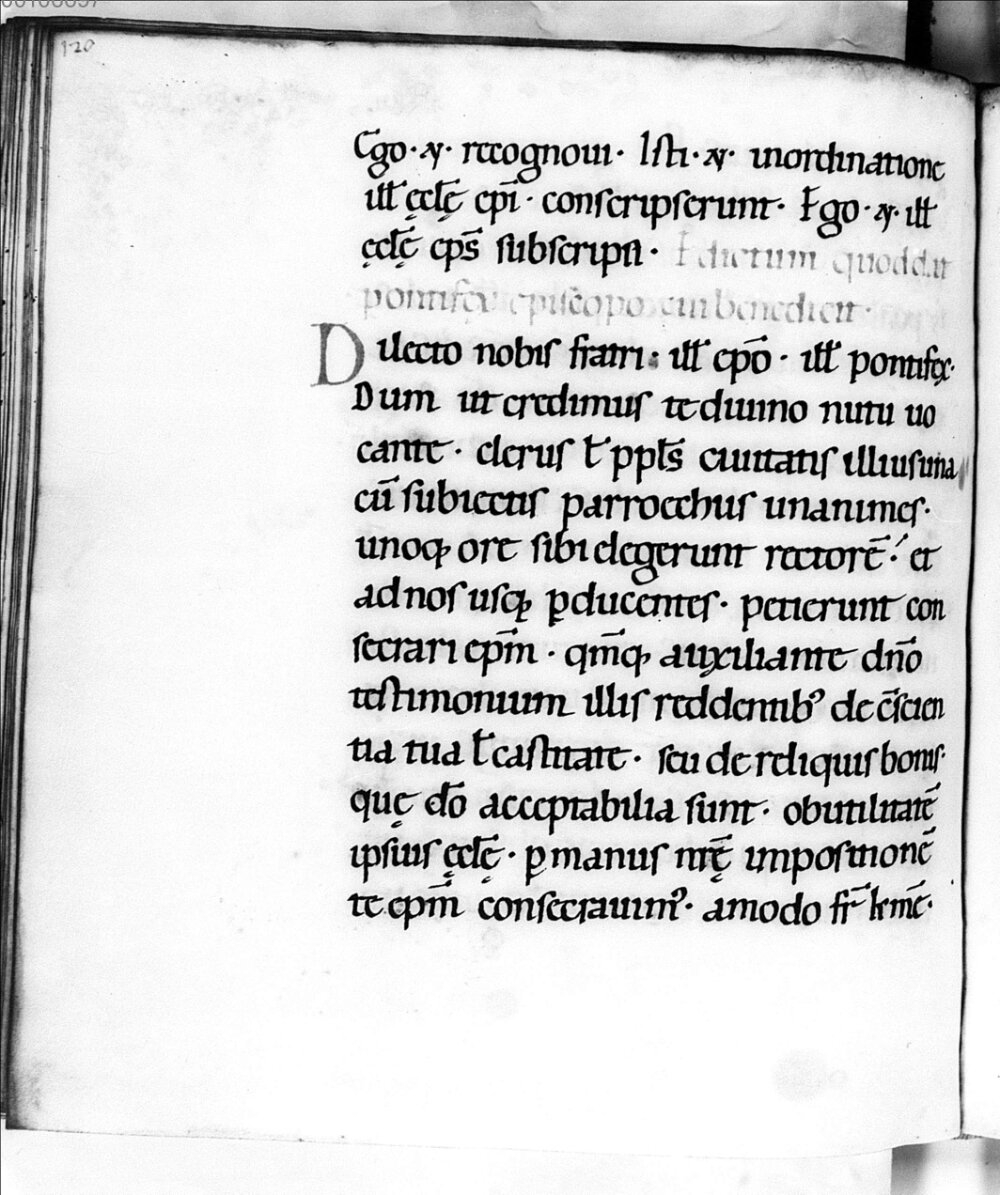 120
Ego · N · recognoui · Isti · N · inordinatione
ill̄ ęclę̄ ep̄i · conscripserunt · Ego · N · ill̄
ęclę̄ ep̄s subscripsi · Edictum quod dat
pontifex episcopo cui benedicit ·
Dilecto nobis fratri · ill̄ ep̄o · ill̄ pontifex ·
Dum ut credimus te diuino nutu uo
cante · clerus ł ppl̄s ciuitatis illius una
cū subiectis parrocchiis unanimes ·
unoq; ore sibi elegerunt rectorē · et
ad nos usq; ꝑducentes · petierunt con
secrari ep̄m · qm̄q; auxiliante dn̄o
testimonium illis reddentib᾿ de c̄scien
tia tua ł castitate · seu de reliquis bonis ·
quę dō acceptabilia sunt · ob utilitatē
ipsius ęclę̄ · ꝑ manus nr̄ę impositionē
te ep̄m consecrauim᾿ · amodo fr̄ km̄e ·